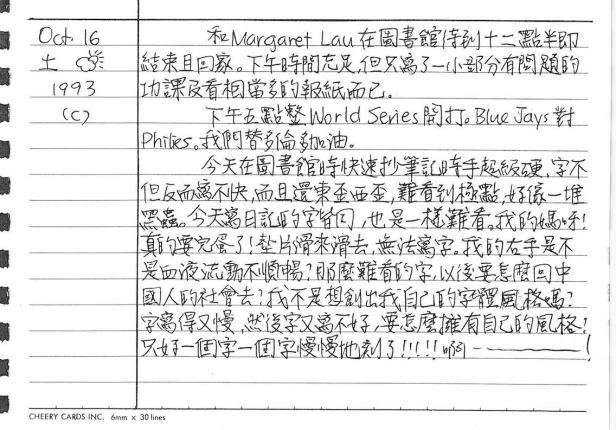 Oct. 16
土
1993
(C)
和Margaret Lau在圖書館待到十二點半即
結束且回家。下午時間充足,但只寫了一小部分有問題的
功課及看相當多的報紙而已。
下午五點整World Series開打。Blue Jays對
Philies。我們替多倫多加油。
今天在圖書館時快速抄筆記時手超級硬,字不
但反而寫不快,而且還東歪西歪,難看到極點,好像一堆
黑蟲。今天寫日記的字皆同,也是一樣難看。我的媽呀!
真的要完蛋了!墊片滑來滑去,無法寫字。我的右手是不
是血液流動不順暢?那麼難看的字,以後要怎麼回中
國人的社會去?我不是想創出我自己的字體風格嗎?
字寫得又慢,然後字又寫不好,要怎麼擁有自己的風格?
只好一個字一個字慢慢地刻了!!!!!啊————!
CHEERY CARDS INC. 6mm × 30 lines